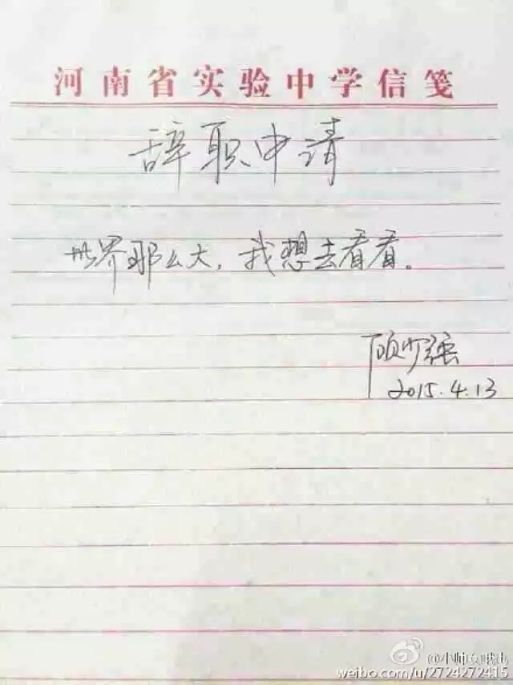 河南省实验中学信笺
辞职申请
世界那么大，我想去看看。
顾少强
2015.4.13
weibo.com/u/2724272415